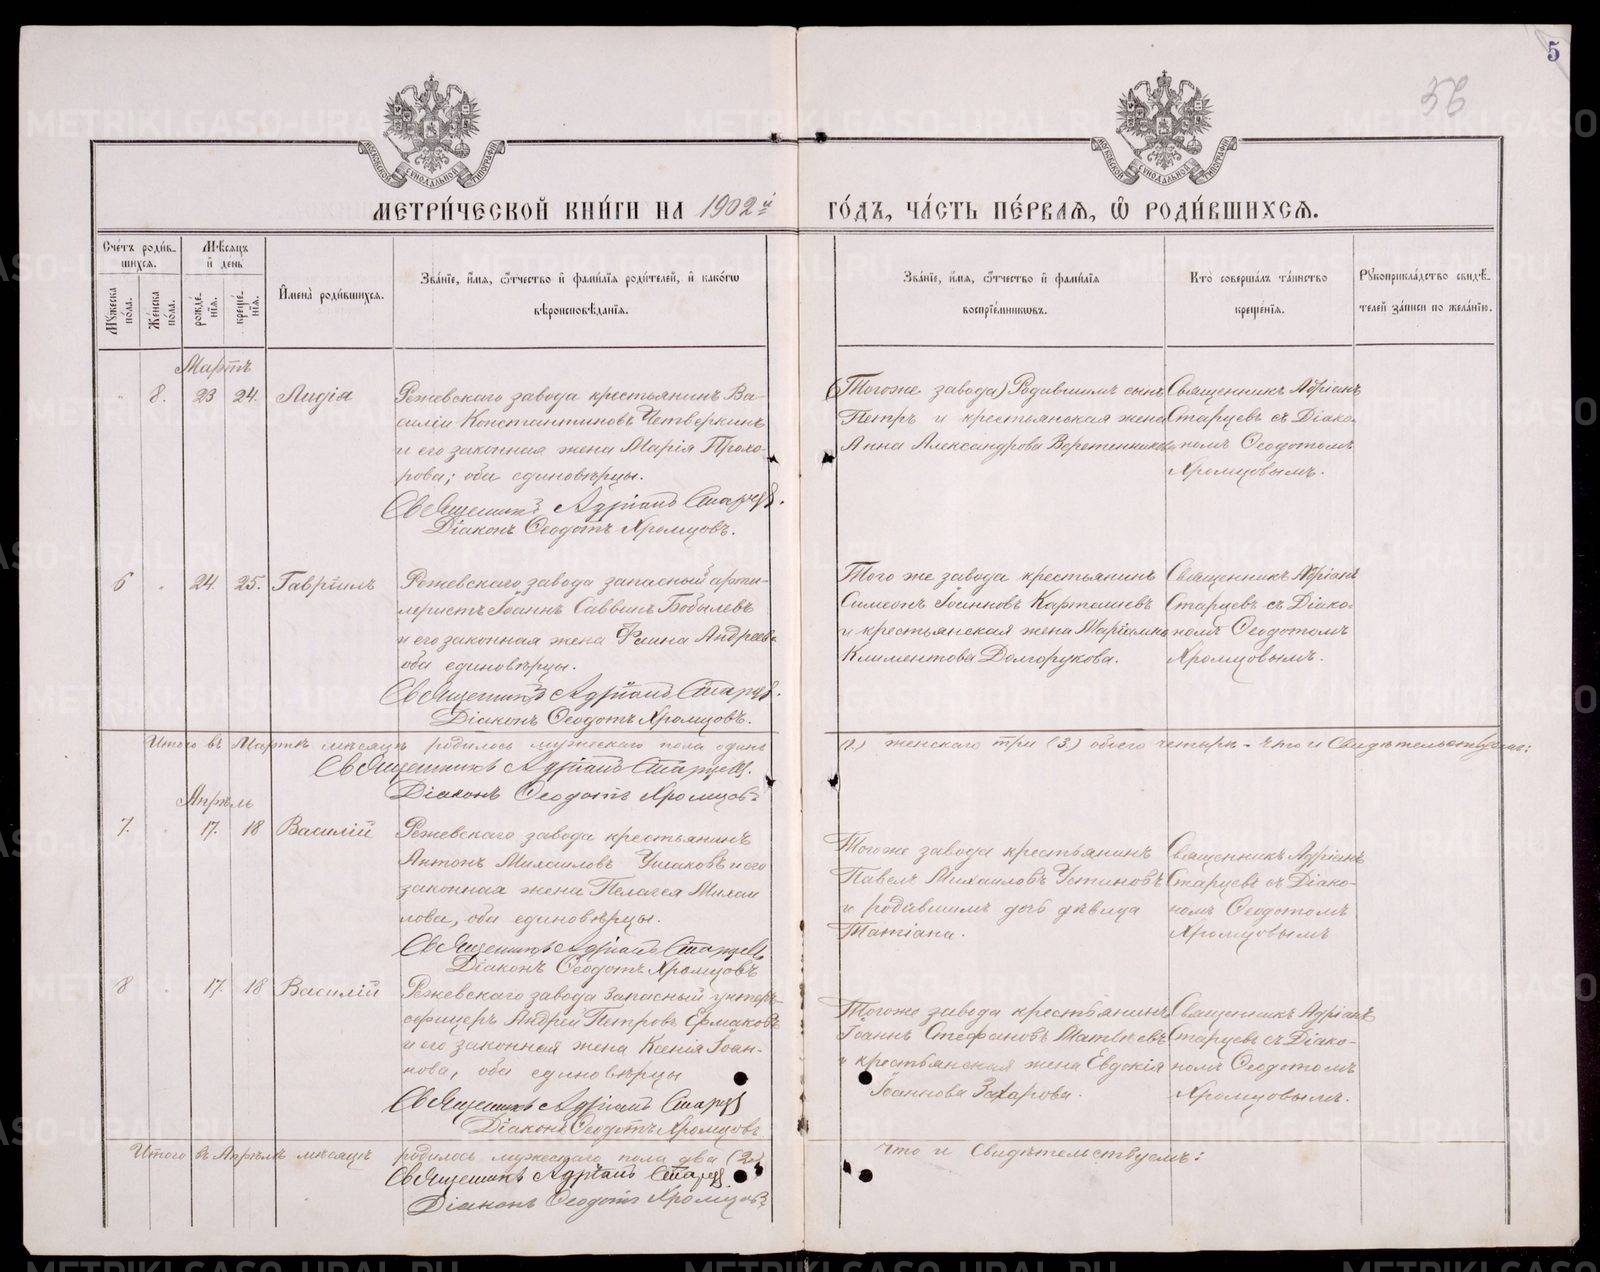 5
36
МОСКОВСКОЙ СѴНОДАЛЬНОЙ ТИПОГРАФІИ
МОСКОВСКОЙ СѴНОДАЛЬНОЙ ТИПОГРАФІИ
МЕТРИ́ЧЕСКОЙ КНИ́ГИ НА 1902й ГО́ДЪ, ЧА́СТЬ ПЕ́РВАЯ, Ѽ РОДИ́ВШИХСЯ.
Сче́тъ роди́в-
шихся.
Мѣсяцъ
и день
Мꙋжеска по́ла.
Же́нска по́ла.
рожде́-
нія.
креще́-
нія.
Имена̀ роди́вшихся.
Зва́ніе, и́мя, ѻ́тчество и фами́лія роди́телей, и како́гѡ
вѣроисповѣ́данія.
Зва́ніе, и́мя, ѻ́тчество и фами́лія
воспріе́мникѡвъ.
Кто̀ соверша́лъ та́инство
креще́нія.
Рꙋкоприкла́дство свидѣ́-
телей за́писи по жела́нію.
Мартъ
8. 23 24. Лидія
Режевскаго завода крестьянинъ Ва-
силій Константиновъ Четверкинъ
и его законная жена Марія Прохо-
рова; оба единовѣрцы.
Священникъ Адріанъ Старцевъ.
Діаконъ Ѳеодотъ Хромцовъ.
(Тогоже завода) Родившимъ сынъ
Петръ и крестьянская жена
Анна Александрова Веретенникова
Священникъ Адріанъ
Старцевъ съ Діако-
номъ Ѳеодотомъ
Хромцовымъ.
6 24. 25. Гавріилъ
Режевскаго завода запасный арти-
леристъ Іоаннъ Саввинъ Бобылевъ
и его законная жена Фаина Андреева
оба единовѣрцы.
Священникъ Адріанъ Старцевъ.
Діаконъ Ѳеодотъ Хромцовъ.
Того же завода крестьянинъ
Симеонъ Іоанновъ Карташевъ
и крестьянская жена Маріамна
Климентова Долгорукова.
Священникъ Адріанъ
Старцевъ съ Діако-
номъ Ѳеодотомъ
Хромцовымъ.
Итого въ Мартѣ мѣсяцѣ родилось мужескаго пола одинъ (1.) женскаго три (3.) обоего четыре - что и Свидѣтельствуемъ:
Священникъ Адріанъ Старцевъ.
Діаконъ Ѳеодотъ Хромцовъ
Апрѣль
7. 17. 18 Василій
Режевскаго завода крестьянинъ
Антонъ Михаиловъ Ушаковъ и его
законная жена Пелагея Михаи
лова, оба единовѣрцы.
Священникъ Адріанъ Старцевъ
Діаконъ Ѳеодотъ Хромцовъ
Тогоже завода крестьянинъ
Павелъ Михаиловъ Устиновъ
и родившимъ дочь дѣвица
Татіана.
Священникъ Адріанъ
Старцевъ съ Діако-
номъ Ѳеодотомъ
Хромцовымъ
8 17. 18 Василій
Режевскаго завода Запасный унтеръ-
офицеръ Андрей Петровъ Ермаковъ
и его законная жена Ксенія Іоан-
нова, оба единовѣрцы
Священникъ Адріанъ Старцевъ
Діаконъ Ѳеодотъ Хромцовъ
Тогоже завода крестьянинъ
Іоаннъ Стефановъ Матвѣевъ
и крестьянская жена Евдокія
Іоаннова Захарова.
Священникъ Адріанъ
Старцевъ съ Діако-
номъ Ѳеодотомъ
Хромцовымъ.
Итого въ Апрѣлѣ мѣсяцѣ родилось мужескаго пола два (2) что и Свидѣтельствуемъ:
Священникъ Адріанъ Старцевъ.
Діаконъ Ѳеодотъ Хромцовъ
METRIKI.GASO-URAL.RU